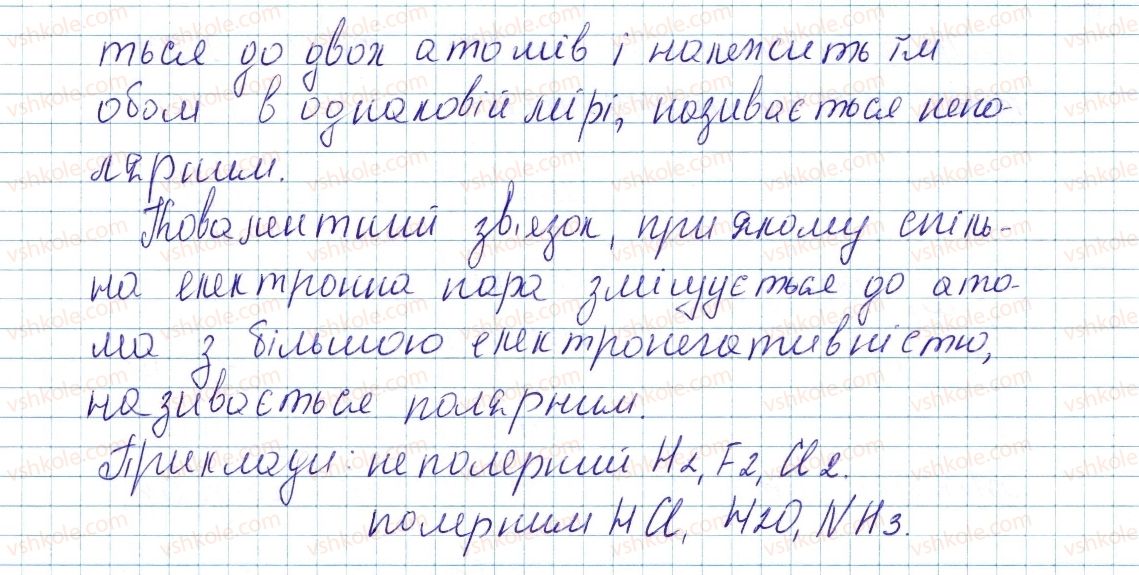 ться до двох атомів і належить їм
обом в однаковій мірі, називається непо-
лярним.
Ковалентний зв'язок, при якому спіль-
на електронна пара зміщується до ато-
ма з більшою електронегативністю,
називається полярним.
Приклади: неполярний H2, F2, Cl2.
полярним HCl, H2O, NH3.